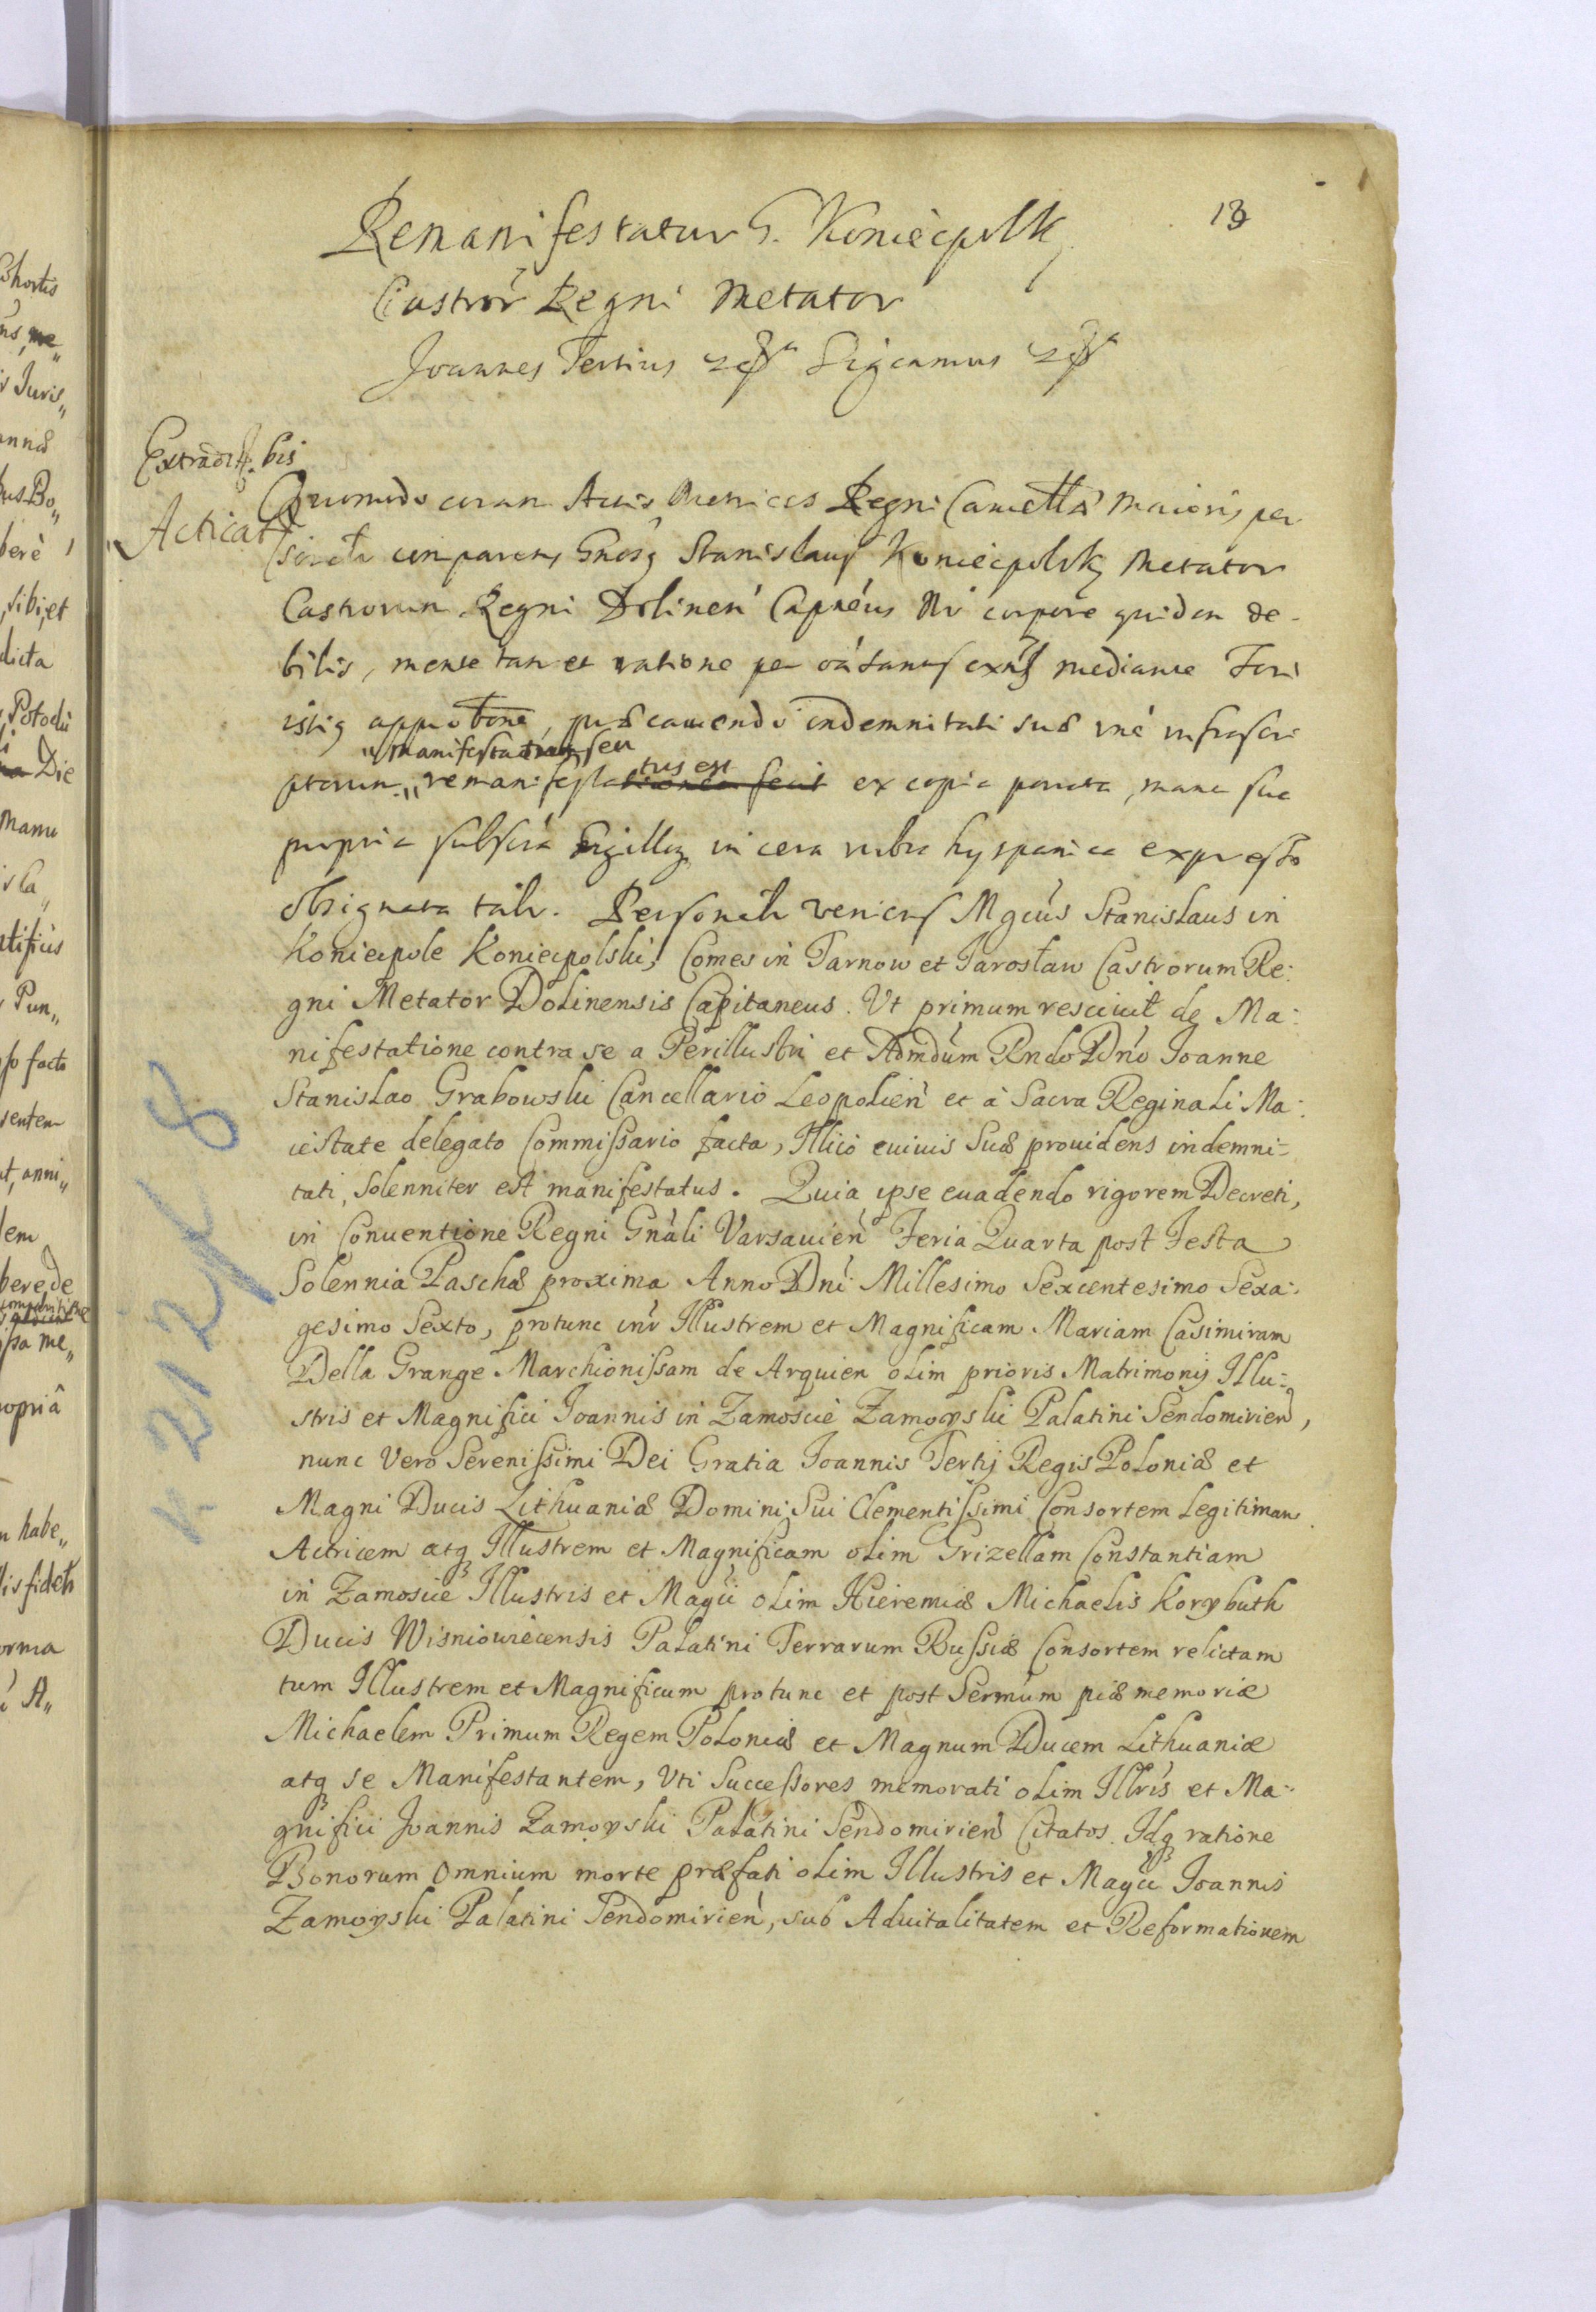 13
Remanifestatur G. Koniecpolsky
Castror Regni Metator
Joannes Tertius Significamus
Extradit. bis
Acticat
Quomodo coram Actis Metrices Regni Cancellæ Maioris per
sonalr comparens Gnosq Stanislaus Koniecpolsky Metator
Castrorum Regni Dolinen Capneus corpore quidem de-
bilis, mente tam et ratione per mediante
istiq approbone, præcauendo indemnitati suæ infrascri
"manifestatus seu
ptorum "remanifestationem fecit tus est ex copia parata, manu sua
propria subscra Sigilloq in cera rubra hyspanica expresso
obsignata tali. Personalr veniens Mgcus Stanislaus in
Koniecpole Koniecpolski, Comes in Tarnow et Jarosław Castrorum Re:
gni Metator Dolinensis Capitaneus. Vt primum resciuit de Ma:
nifestatione contra se a Perillustri et Admdum Rndo Dno Joanne
Stanislao Grabowski Cancellario Leopolien et à Sacra Reginali Ma:
iestate delegato Commissario facta, Illico cuiuis Suæ prouidens indemni-
tati, Solenniter est manifestatus. Quia ipse euadendo rigorem Decreti,
in Conuentione Regni Gnali Varsauien Feria Quarta post Festa
Solennia Paschæ proxima Anno Dni Millesimo Sexcentesimo Sexa:
gesimo Sexto, protunc intr Illustrem et Magnificam Mariam Casimiram
Della Grange Marchionissam de Arquien olim prioris Matrimonij Illu:
stris et Magnifici Joannis in Zamoscie Zamoyski Palatini Sendomirien,
nunc Vero Serenissimi Dei Gratia Joannis Tertij Regis Poloniæ et
Magni Ducis Lithuaniæ Domini Sui Clementissimi Consortem Legitimam
Actricem atq Illustrem et Magnificam olim Grizellam Constantiam
in Zamoscie Illustris et Magci olim Hieremiæ Michaelis Korybuth
Ducis Wisniowiecensis Palatini Terrarum Russiæ Consortem relictam
tum Illustrem et Magnificum protunc et post Sermum piæ memoriæ
Michaelem Primum Regem Poloniæ et Magnum Ducem Lithuaniæ
atq se Manifestantem, Vti Successores memorati olim Illris et Ma-
gnifici Joannis Zamoyski Palatini Sendomirien Citatos. Idq ratione
Bonorum Omnium morte præfati olim Illustris et Magci Joannis
Zamoyski Palatini Sendomirien, sub Aduitalitatem et Reformationem